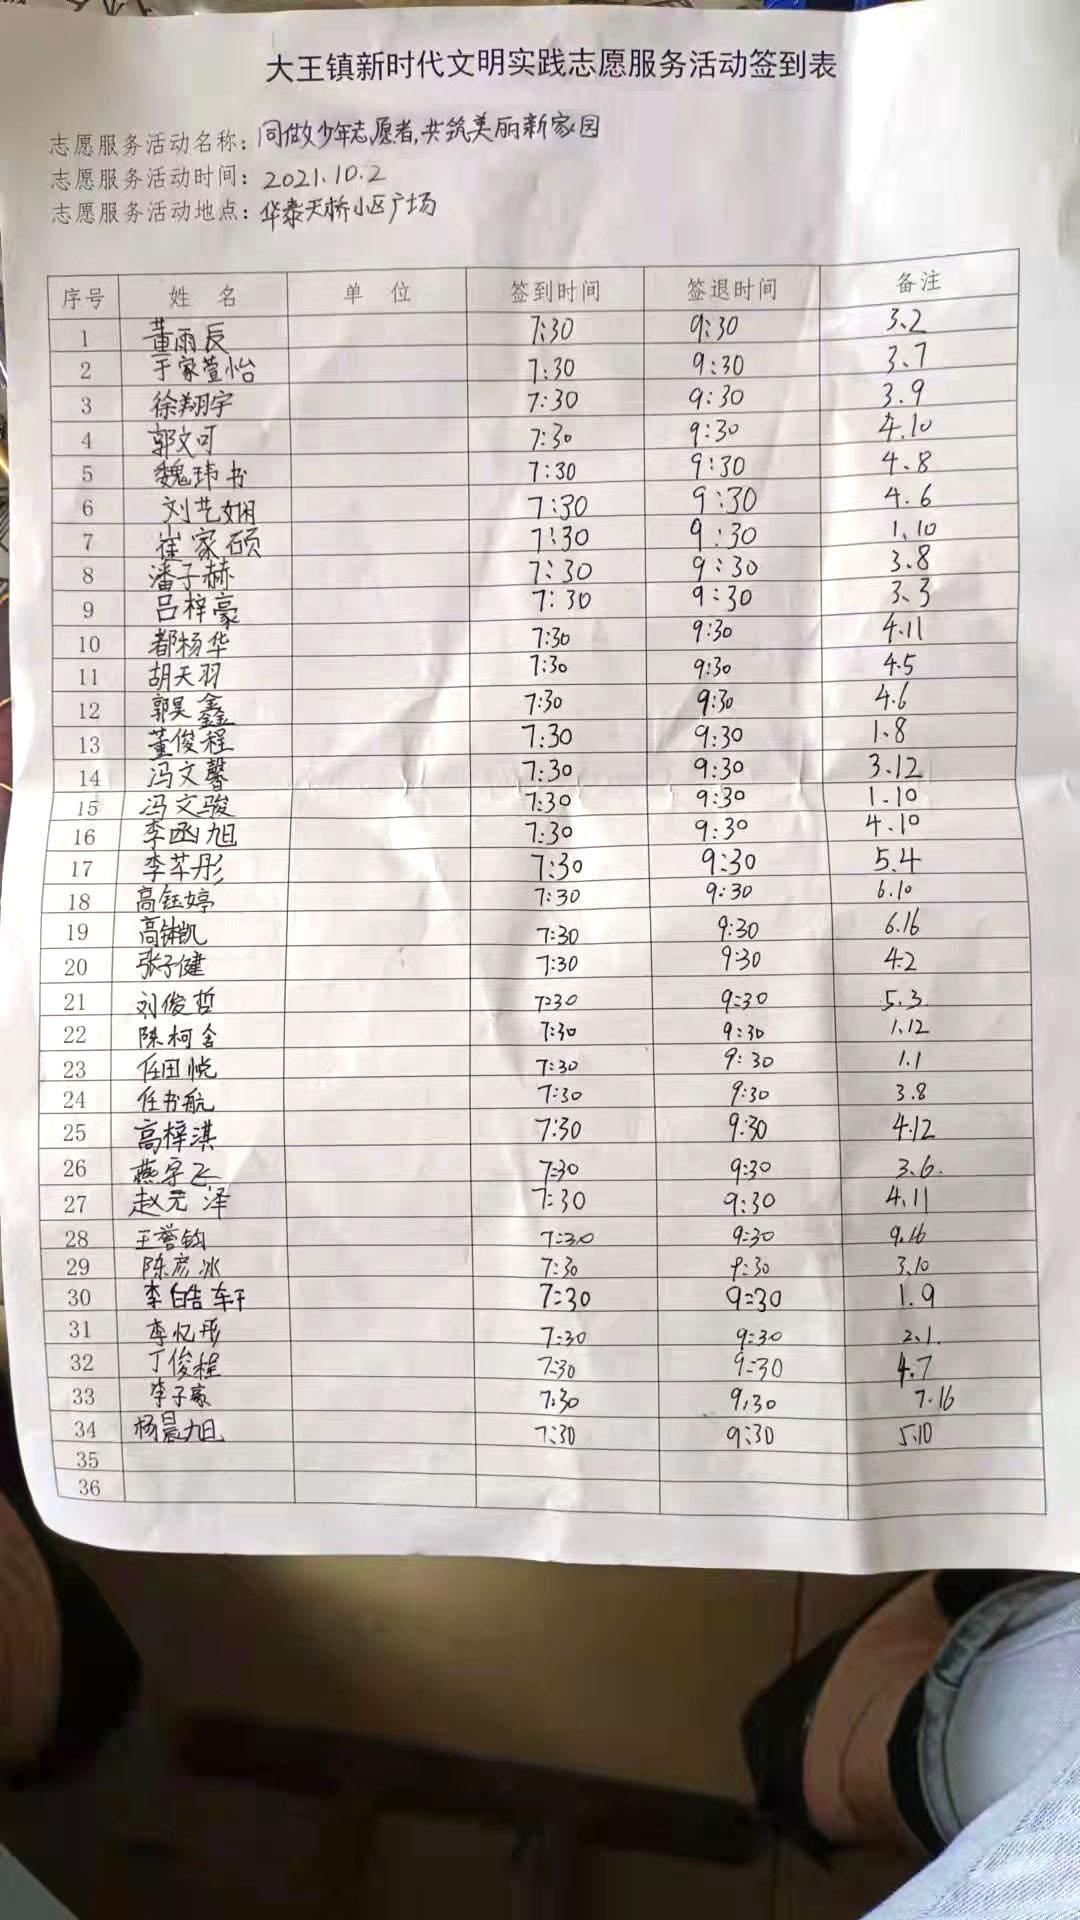 大王镇新时代文明实践志愿服务活动签到表
志愿服务活动名称：同做少年志愿者,共筑美丽新家园
志愿服务活动时间：2021.10.2
志愿服务活动地点：华泰天桥小区广场
序号 姓名 单位 签到时间 签退时间 备注
1 董雨辰 7:30 9:30 3.2
2 于家萱怡 7:30 9:30 3.7
3 徐翔宇 7:30 9:30 3.9
4 郭文可 7:30 9:30 4.10
5 魏玮书 7:30 9:30 4.8
6 刘艺娴 7:30 9:30 4.6
7 崔家硕 7:30 9:30 1.10
8 潘子赫 7:30 9:30 3.8
9 吕梓豪 7:30 9:30 3.3
10 都杨华 7:30 9:30 4.11
11 胡天羽 7:30 9:30 4.5
12 郭昊鑫 7:30 9:30 4.6
13 董俊程 7:30 9:30 1.8
14 冯文馨 7:30 9:30 3.12
15 冯文骏 7:30 9:30 1.10
16 李函旭 7:30 9:30 4.10
17 李芊彤 7:30 9:30 5.4
18 高钰婷 7:30 9:30 6.10
19 7:30 9:30 6.16
20 张子健 7:30 9:30 4.2
21 刘俊哲 7:30 9:30 5.3
22 陈柯含 7:30 9:30 1.12
23 任田悦 7:30 9:30 1.1
24 任书航 7:30 9:30 3.8
25 高梓淇 7:30 9:30 4.12
26 燕宇飞 7:30 9:30 3.6.
27 赵元泽 7:30 9:30 4.11
28 王誉钧 7:30 9:30 9.16
29 陈彦冰 7:30 9:30 3.10
30 李皓轩 7:30 9:30 1.9
31 李忆彤 7:30 9:30 2.1.
32 丁俊程 7:30 9:30 4.7
33 李子豪 7:30 9:30 7.16
34 杨晨旭 7:30 9:30 5.10
35
36